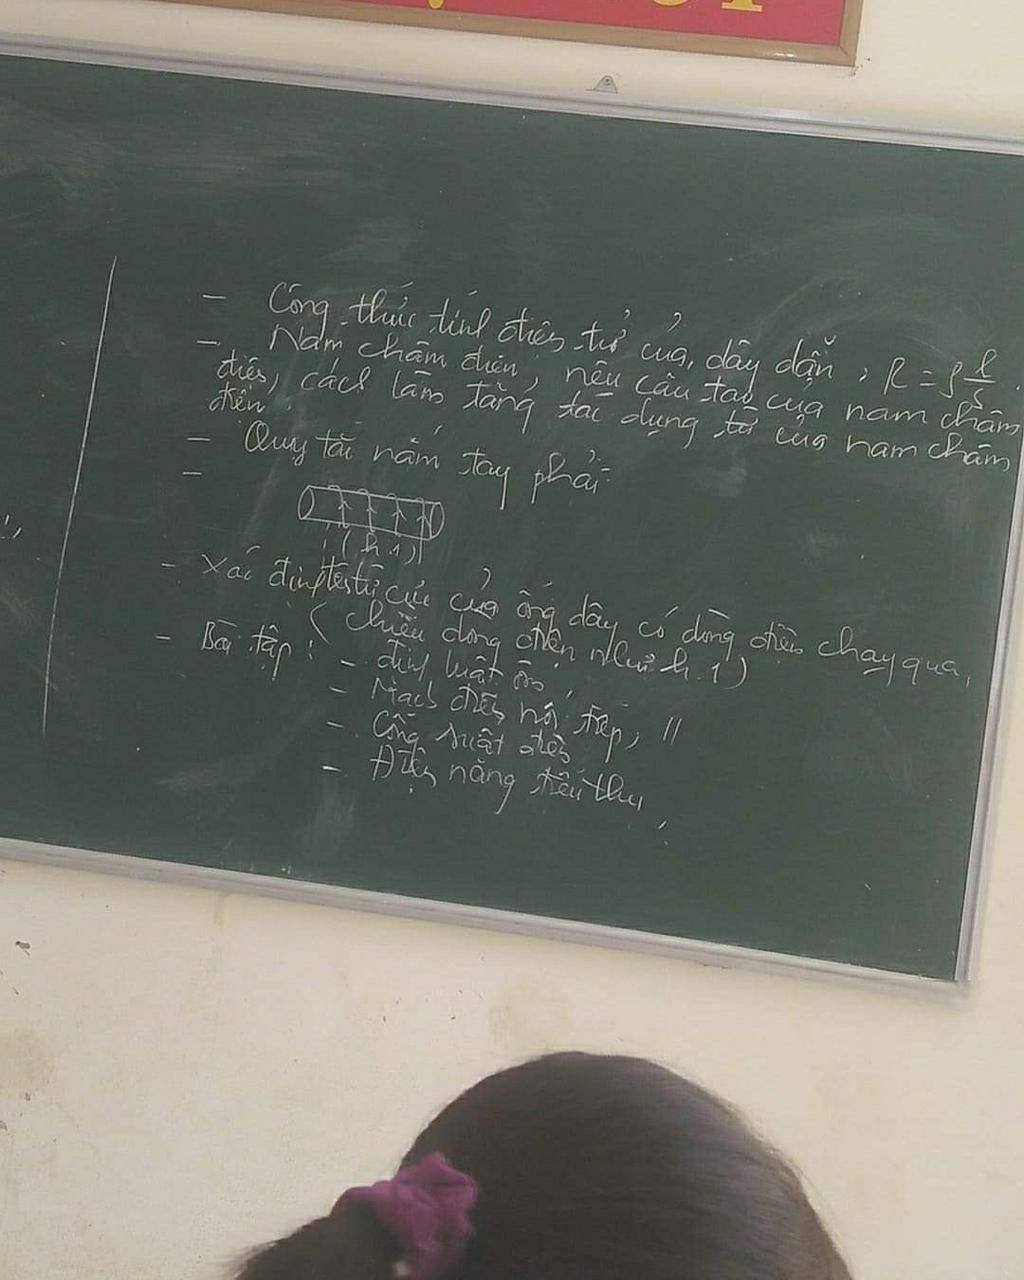 - Công thức tính điện trở của dây dẫn, R = ρ l/S.
- Nam châm điện, nêu cấu tạo của nam châm
điện, cách làm tăng tác dụng từ của nam châm
điện.
- Quy tắc nắm tay phải
-
(h.1)
- Xác định tên từ cực của ống dây có dòng điện chạy qua,
(chiều dòng điện như h.1)
- Bài tập: - định luật ôm
- Mạch điện nối tiếp, //
- Công suất điện
- Điện năng tiêu thụ,